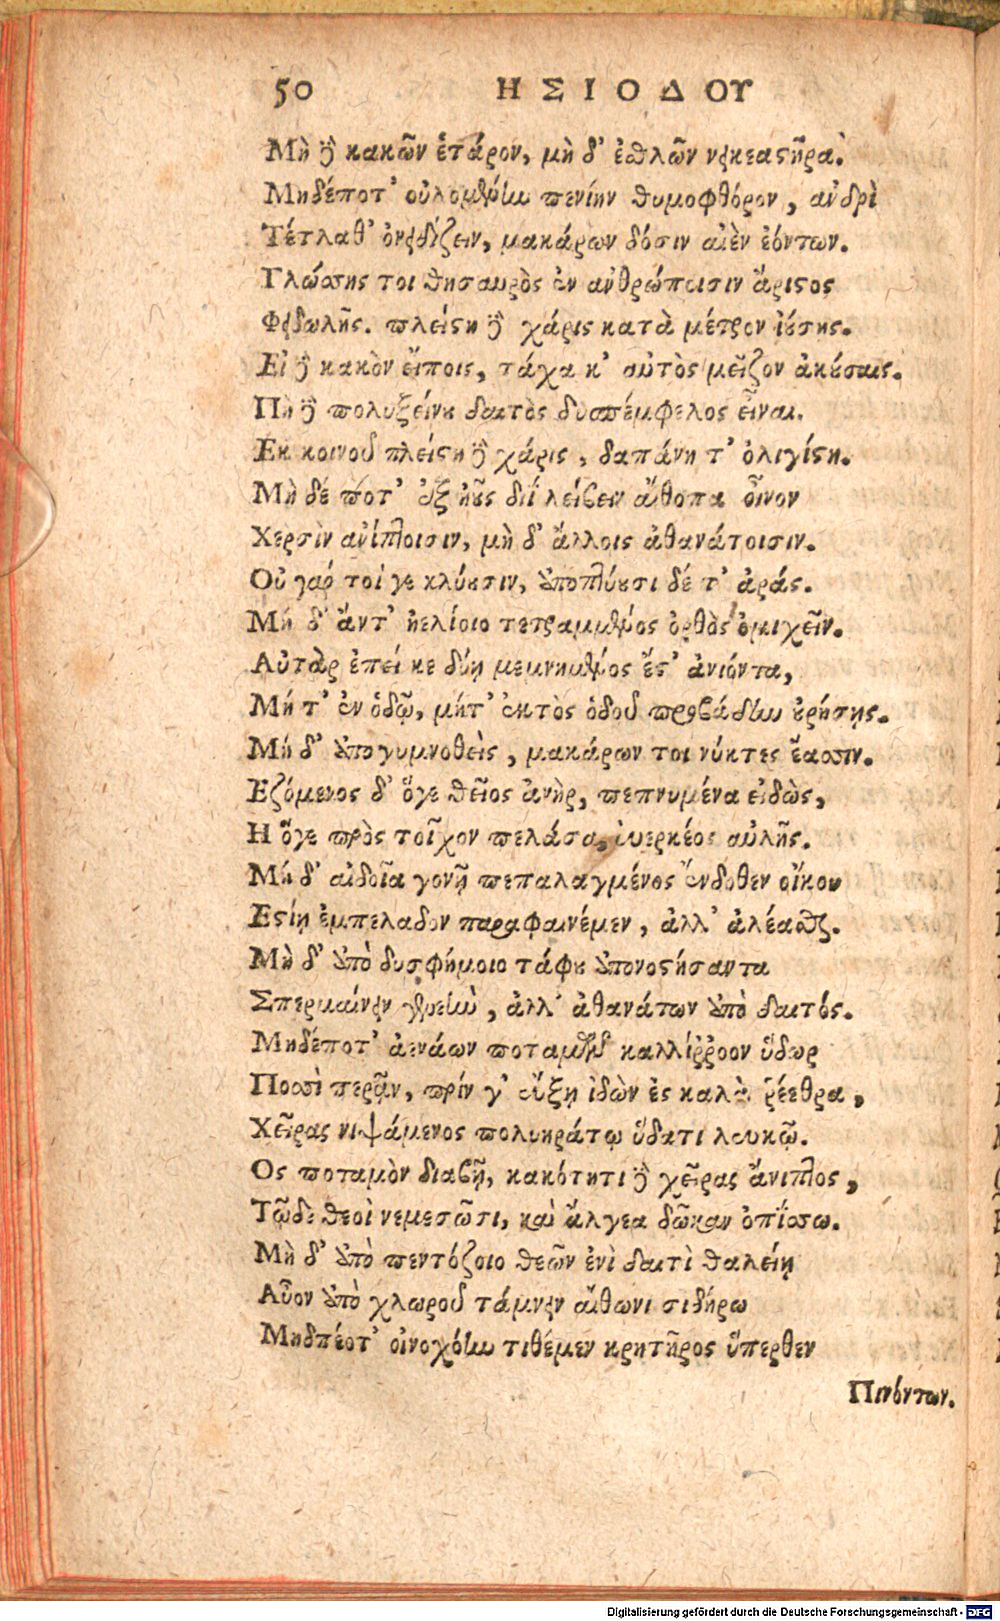 50 ΗΣΙΟΔΟΥ
Μὴ δὲ κακῶν ἑτάρον, μὴ δ' ἐσθλῶν νεικεαστῆρα.
Μηδέποτ' οὐλομένην πενίην θυμοφθόρον, ἀνδρὶ
Τέτλαθ' ὀνειδίζειν, μακάρων δόσιν αἰὲν ἐόντων.
Γλώσσης τοι θησαυρὸς ἐν ἀνθρώποισιν ἄριστος
Φειδωλῆς. πλείστη δὲ χάρις κατὰ μέτρον ἰούσης.
Εἰ δὲ κακὸν εἴποις, τάχα κ' αὐτὸς μεῖζον ἀκούσαις.
Πὴ δὲ πολυξείνου δαιτὸς δυσπέμφελος εἶναι.
Ἐκ κοινοῦ πλείστη δὲ χάρις, δαπάνη τ' ὀλιγίστη.
Μὴ δέ ποτ' ἐξ ἠοῦς διῒ λείβειν αἴθοπα οἶνον
Χερσὶν ἀνίπτοισιν, μὴ δ' ἄλλοις ἀθανάτοισιν.
Οὐ γάρ τοί γε κλύουσιν, ἀποπτύουσι δέ τ' ἀράς.
Μή δ' ἄντ' ἠελίοιο τετραμμένος ὀρθὸς ὀμιχεῖν.
Αὐτὰρ ἐπεί κε δύῃ μεμνημένος ἔς τ' ἀνιόντα,
Μή τ' ἐν ὁδῷ, μήτ' ἐκτὸς ὁδοῦ προβάδην οὐρήσῃς.
Μή δ' ἀπογυμνοθεὶς, μακάρων τοι νύκτες ἔασσιν.
Εζόμενος δ' ὅγε θεῖος ἀνὴρ, πεπνυμένα εἰδὼς,
Η ὅγε πρὸς τοῖχον πελάσας ἐυερκέος αὐλῆς.
Μή δ' αἰδοῖα γονῇ πεπαλαγμένος ἔνδοθεν οἴκου
Εστίῃ ἐμπελαδὸν παραφαινέμεν, ἀλλ' ἀλέασθαι.
Μὴ δ' ἀπὸ δυσφήμοιο τάφου ἀπονοστήσαντα
Σπερμαίνειν γενεὴν, ἀλλ' ἀθανάτων ἀπὸ δαιτός.
Μηδέποτ' ἀενάων ποταμῶν καλλίῤῥοον ὕδωρ
Ποσσὶ περᾷν, πρίν γ' εὔξῃ ἰδὼν ἐς καλὰ ῥέεθρα,
Χεῖρας νιψάμενος πολυηράτῳ ὕδατι λευκῷ.
Ος ποταμὸν διαβῇ, κακότητι δὲ χεῖρας ἄνιπτος,
Τῷδε θεοὶ νεμεσῶσι, καὶ ἄλγεα δῶκαν ὀπίσσω.
Μὴ δ' ἀπὸ πεντόζοιο θεῶν ἐνὶ δαιτὶ θαλείῃ
Αὖον ἀπὸ χλωροῦ τάμνειν αἴθωνι σιδήρω
Μηδπέοτ' οἰνοχόην τιθέμεν κρητῆρος ὕπερθεν
Πινόντων.
Digitalisierung gefördert durch die Deutsche Forschungsgemeinschaft - DFG